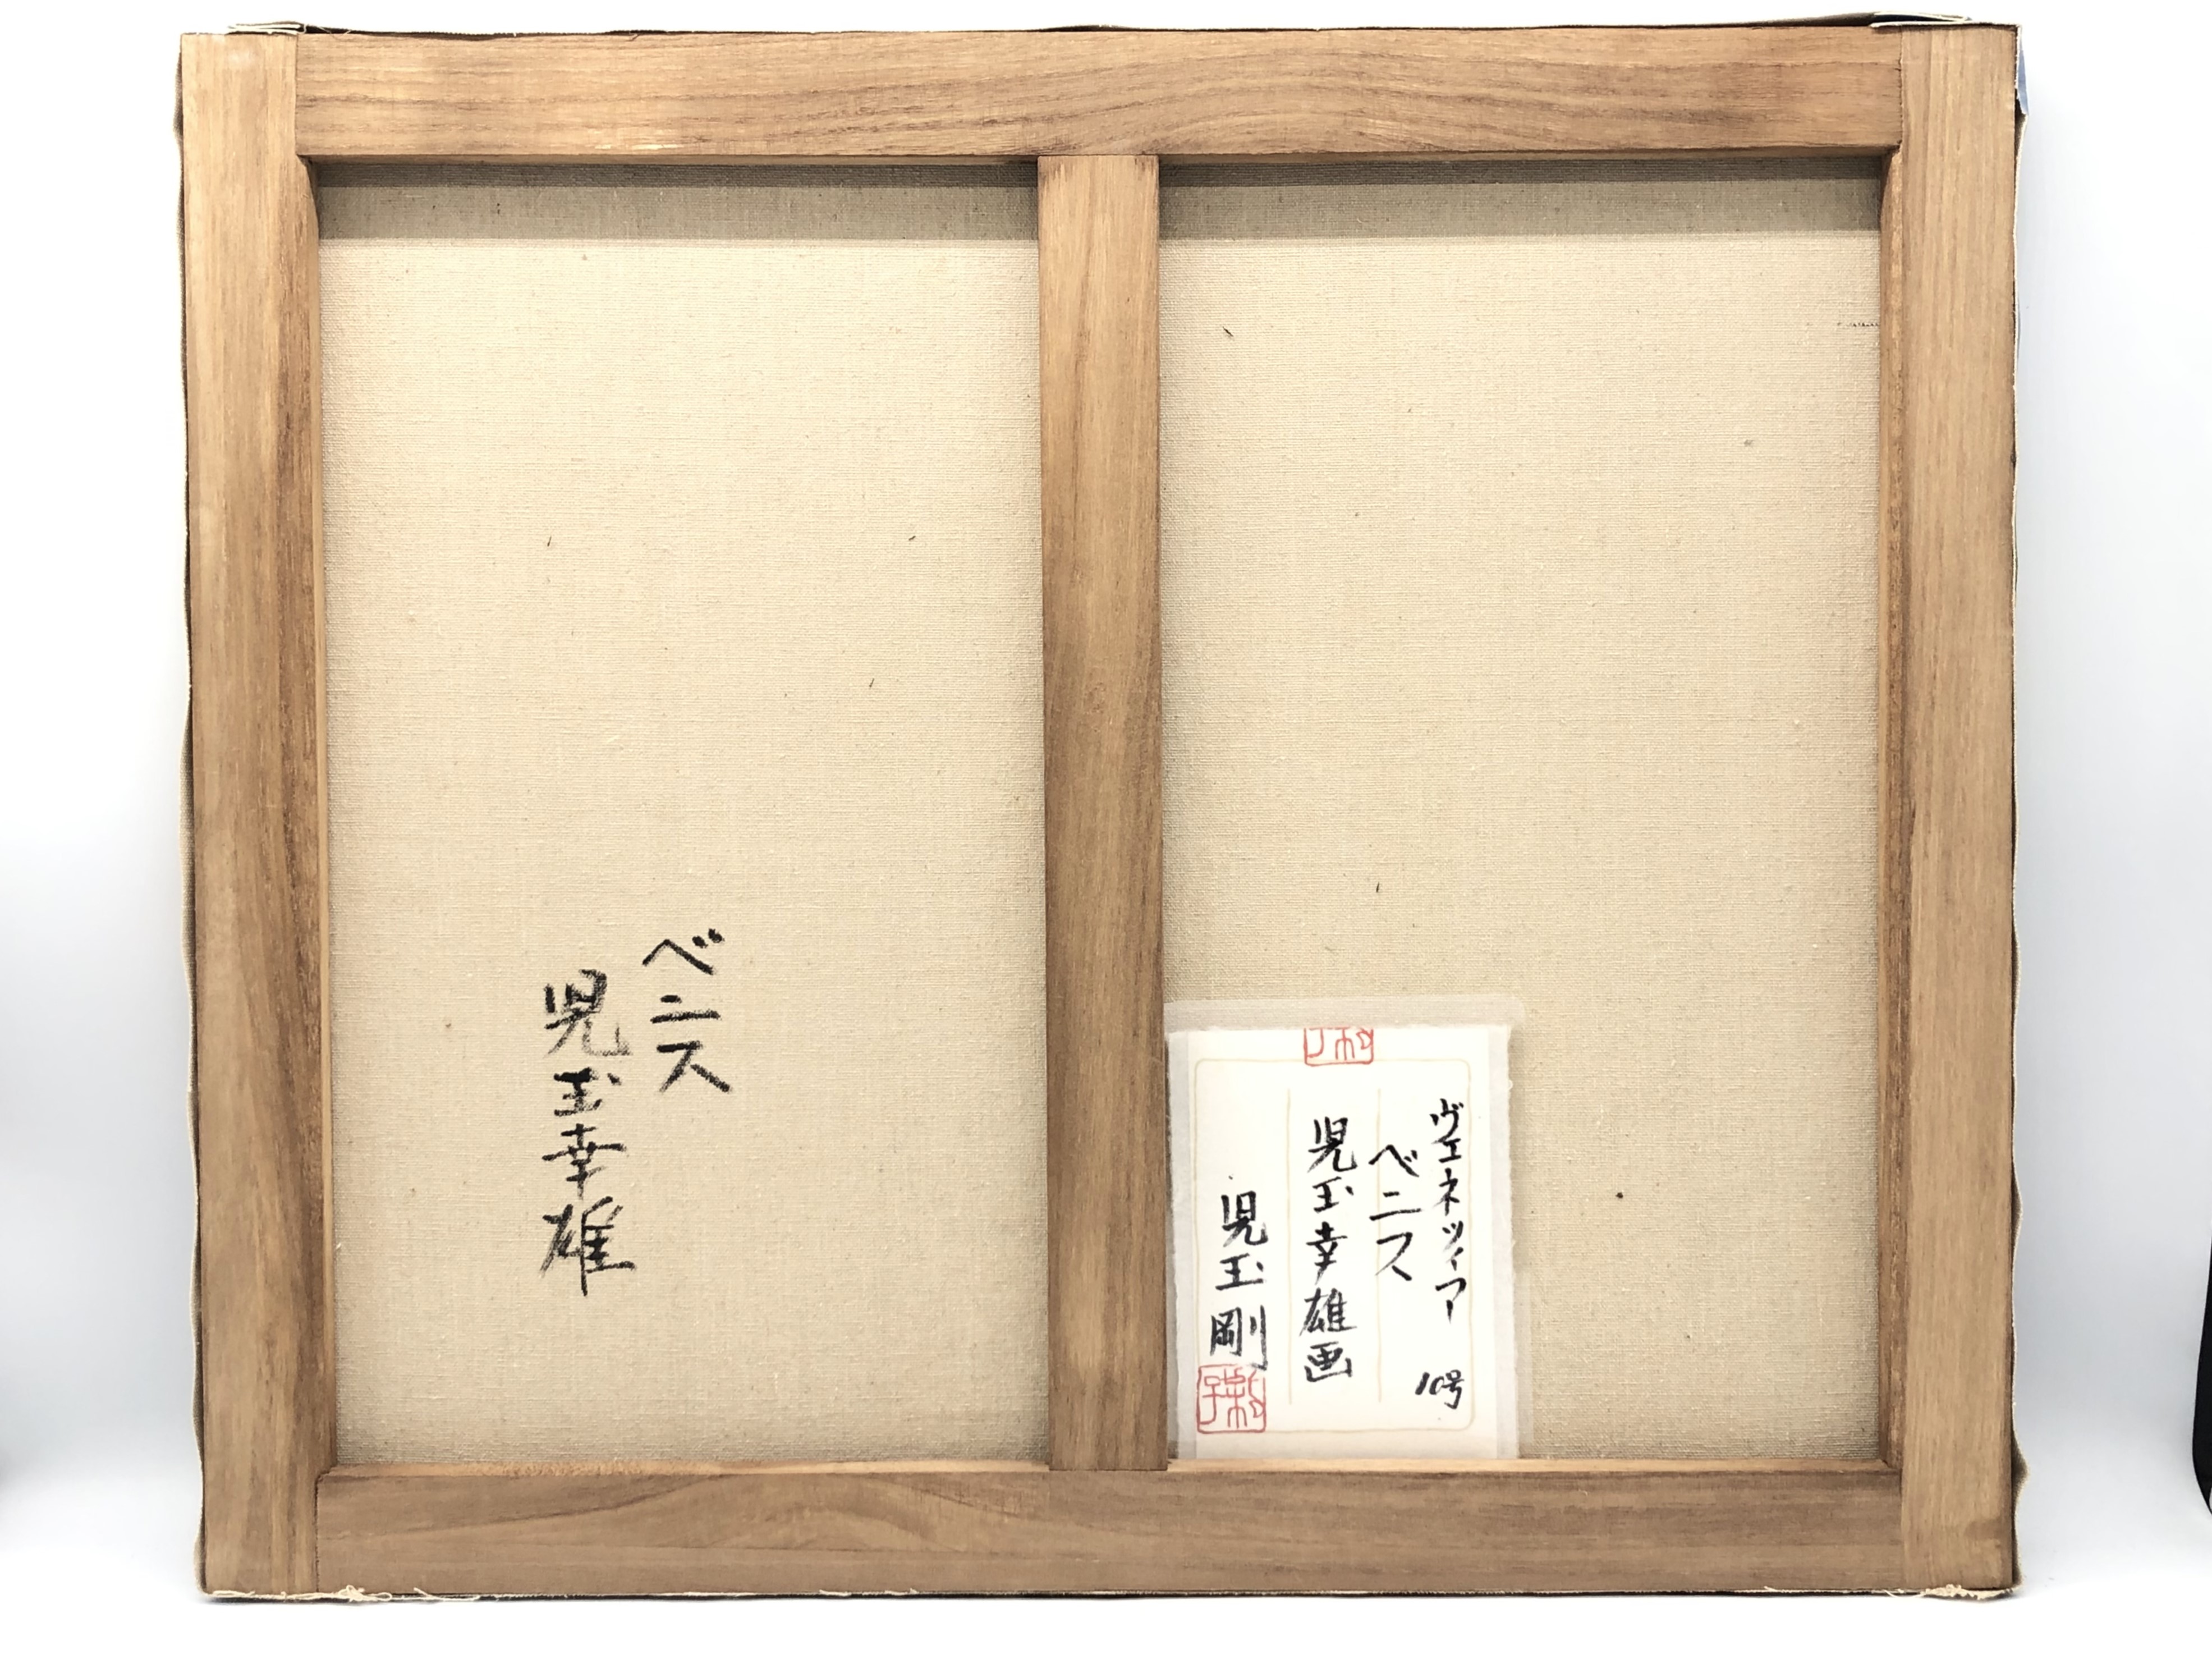 ベニス
児玉幸雄
ヴェネツィア 10号
ベニス
児玉幸雄画
児玉剛